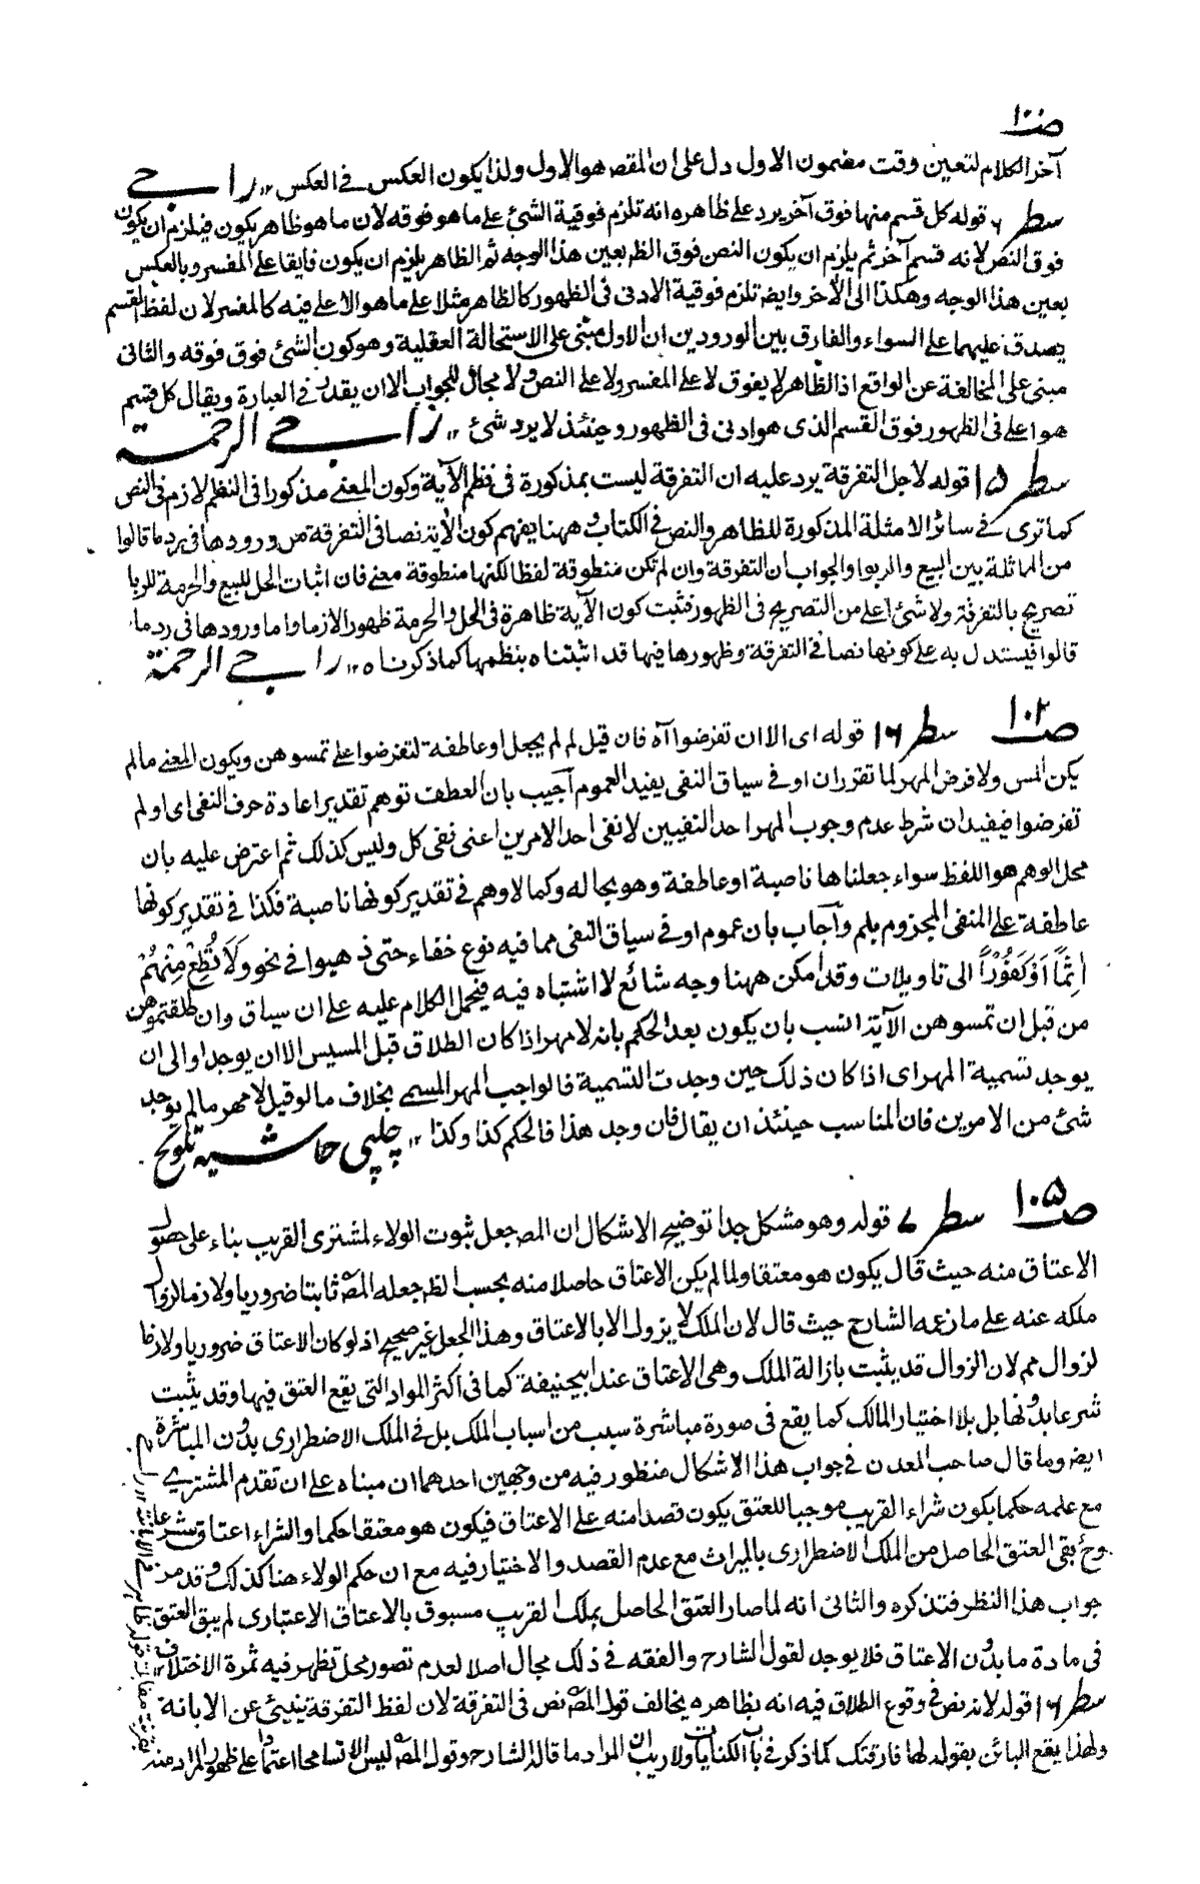 صـ١٠٠
آخر الكلام لتعين وقت مضمون الاول دل على ان المقصد هو الاول ولذا يكون العكس فى العكس ١٢
سطر ٦ قوله كل قسم منها فوق آخر يرد على ظاهره انه تلزم فوقية الشئ على ما هو فوقه لان ما هو ظاهر يكون فيلزم ان يكون
فوق النص لانه قسم آخر ثم يلزم ان يكون النص فوق الظ بعين هذا الوجه ثم الظاهر يلزم ان يكون فايقا على المفسر وبالعكس
بعين هذا الوجه وهكذا الى الآخر وايضا تلزم فوقية الادنى فى الظهور كالظاهر مثلا على ما هو الاعلى فيه كالمفسر لان لفظ القسم
يصدق عليهما على السواء والفارق بين الورودين ان الاول مبنى على الاستحالة العقلية وهو كون الشئ فوق فوقه والثانى
مبنى على المخالفة عن الواقع اذ الظاهر لا يفوق لا على المفسر ولا على النص ولا مجال للجواب الا ان يقدر فى العبارة ويقال كل قسم
هو اعلى فى الظهور فوق القسم الذى هو ادنى فى الظهور وحينئذ لا يرد شئ ١٢
سطر ١٥ قوله لاجل التفرقة يرد عليه ان التفرقة ليست بمذكورة فى نظم الآية وكون المعنى مذكورا فى النظم لازم فى النص
كما ترى فى سائر الامثلة المذكورة للظاهر والنص فى الكتاب وههنا يفهم كون الآية نصا فى التفرقة من ورودها فى رد ما قالوا
من المماثلة بين البيع والربوا والجواب ان التفرقة وان لم تكن منطوقة لفظا لكنها منطوقة معنى فان اثبات الحل للبيع والحرمة للربا
تصريح بالتفرقة ولا شئ اعلى من التصريح فى الظهور فثبت كون الآية ظاهرة فى الحل والحرمة ظهورا لازما واما ورودها فى رد ما
قالوا فيستدل به على كونها نصا فى التفرقة وظهورها فيها قد اثبتناه بنظمها كما ذكرناه ١٢
صـ١٠٢ سطر ١٦ قوله اى الا ان تفرضوا آه فان قيل لم لم يجعل او عاطفة لتفرضوا على تمسوهن ويكون المعنى ما لم
يكن المس ولا فرض المهر لما تقرر ان او فى سياق النفى يفيد العموم أجيب بان العطف توهم تقدير اعادة حرف النفى اى او لم
تفرضوا فيفيد ان شرط عدم وجوب المهر احد النفيين لا نفى احد الامرين اعنى نفى كل وليس كذلك ثم اعترض عليه بان
محل الوهم هو اللفظ سواء جعلناها ناصبة او عاطفة وهو بحاله وكما لا وهم فى تقدير كونها ناصبة فكذا فى تقدير كونها
عاطفة على المنفى المجزوم بلم وأجاب بان عموم او فى سياق النفى مما فيه نوع خفاء حتى ذهبوا فى نحو وَلَا تُطِعْ مِنْهُمْ
اٰثِمًا اَوْ كَفُوْرًا الى تاويلات وقد امكن ههنا وجه شائع لا اشتباه فيه فيحمل الكلام عليه على ان سياق وان طلقتموهن
من قبل ان تمسوهن الآية انسب بان يكون بعد الحكم بانه لا مهر اذا كان الطلاق قبل المسيس الا ان يوجد او الى ان
يوجد تسمية المهر اى اذا كان ذلك حين وجدت التسمية فالواجب المهر المسمى بخلاف ما لو قيل لا مهر ما لم يوجد
شئ من الامرين فان المناسب حينئذ ان يقال فان وجد هذا فالحكم كذا وكذا ١٢ چلپى حاشيه تلويح
صـ١٠٥ سطر ٧ قوله وهو مشكل جدا توضيح الاشكال ان المصـ جعل ثبوت الولاء لمشترى القريب بناء على حصول
الاعتاق منه حيث قال يكون هو معتقا ولما لم يكن الاعتاق حاصلا منه بحسب الظ جعله المصـ ثابتا ضروريا ولازما لزوال
ملكه عنه على ما زعمه الشارح حيث قال لان الملك لا يزول الا بالاعتاق وهذا الجعل غير صحيح اذ لو كان الاعتاق ضروريا ولازما
لزوال مم لان الزوال قد يثبت بازالة الملك وهى الاعتاق عند ابيحنيفة كما فى اكثر المواد التى يقع العتق فيها وقد يثبت
شرعا بدونها بل بلا اختيار المالك كما يقع فى صورة مباشرة سبب من اسباب الملك بل فى الملك الاضطرارى بدون المباشرة
ايضا وما قال صاحب المعدن فى جواب هذا الاشكال منظور فيه من وجهين احدهما ان مبناه على ان تقدم المشترى
مع علمه حكما بكون شراء القريب موجبا للعتق يكون قصدا منه على الاعتاق فيكون هو معتقا حكما والشراء اعتاق شرعا
وح بقى العتق الحاصل من الملك الاضطرارى بالميراث مع عدم القصد والاختيار فيه مع ان حكم الولاء هنا كذلك وقد مر
جواب هذا النظر فتذكره والثانى انه لما صار العتق الحاصل بملك القريب مسبوق بالاعتاق الاعتبارى لم يبق العتق
فى مادة ما بدون الاعتاق فلا يوجد لقول الشارح والفقه فى ذلك مجال اصلا لعدم تصور محل تظهر فيه ثمرة الاختلاف
سطر ١٦ قوله لانه نص فى وقوع الطلاق فيه انه بظاهره يخالف قول المصـ نص فى التفرقة لان لفظ التفرقة ينبئ عن الابانة
ولهذا يقع البائن بقوله لها فارقتك كما ذكر فى باب الكنايات ولا ريب ان المراد ما قال الشارح وقول المصـ ليس الا تسامحا اعتمادا على ظهور المراد منه